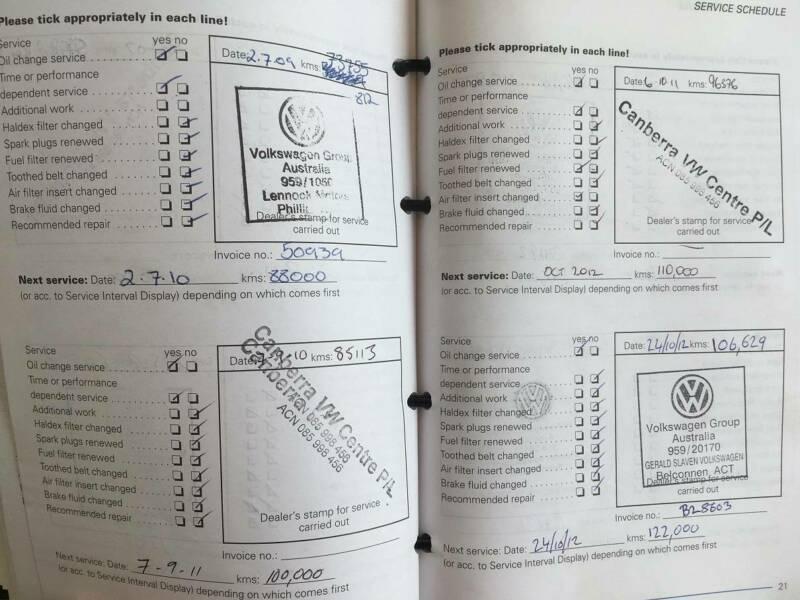 Please tick appropriately in each line!
Service yes no
Oil change service
Time or performance
dependent service
Additional work
Haldex filter changed
Spark plugs renewed
Fuel filter renewed
Toothed belt changed
Air filter insert changed
Brake fluid changed
Recommended repair
Date: 2.7.09 kms: 73955
812
Volkswagen Group
Australia
959/1050
Lennock Motors
Phillip
Dealer's stamp for service
carried out
Invoice no.: 50939
Next service: Date: 2.7.10 kms: 88000
(or acc. to Service Interval Display) depending on which comes first
Service yes no
Oil change service
Time or performance
dependent service
Additional work
Haldex filter changed
Spark plugs renewed
Fuel filter renewed
Toothed belt changed
Air filter insert changed
Brake fluid changed
Recommended repair
Date: 10 kms: 85113
Canberra VW Centre P/L
Canberra
ACN 085 998 456
ACN 085 998 456
Dealer's stamp for service
carried out
Invoice no.:
Next service: Date: 7-9-11 kms: 100,000
(or acc. to Service Interval Display) depending on which comes first
SERVICE SCHEDULE
Please tick appropriately in each line!
Service yes no
Oil change service
Time or performance
dependent service
Additional work
Haldex filter changed
Spark plugs renewed
Fuel filter renewed
Toothed belt changed
Air filter insert changed
Brake fluid changed
Recommended repair
Date: 6.10.11 kms: 96376
Canberra VW Centre P/L
ACN 085 998 456
Dealer's stamp for service
carried out
Invoice no.:
Next service: Date: OCT 2012 kms: 110,000
(or acc. to Service Interval Display) depending on which comes first
Service yes no
Oil change service
Time or performance
dependent service
Additional work
Haldex filter changed
Spark plugs renewed
Fuel filter renewed
Toothed belt changed
Air filter insert changed
Brake fluid changed
Recommended repair
Date: 24/10/12 kms: 106,629
Volkswagen Group
Australia
959/20170
GERALD SLAVEN VOLKSWAGEN
Belconnen, ACT
Dealer's stamp for service
carried out
Invoice no.: B28603
Next service: Date: 24/10/12 kms: 122,000
(or acc. to Service Interval Display) depending on which comes first
21